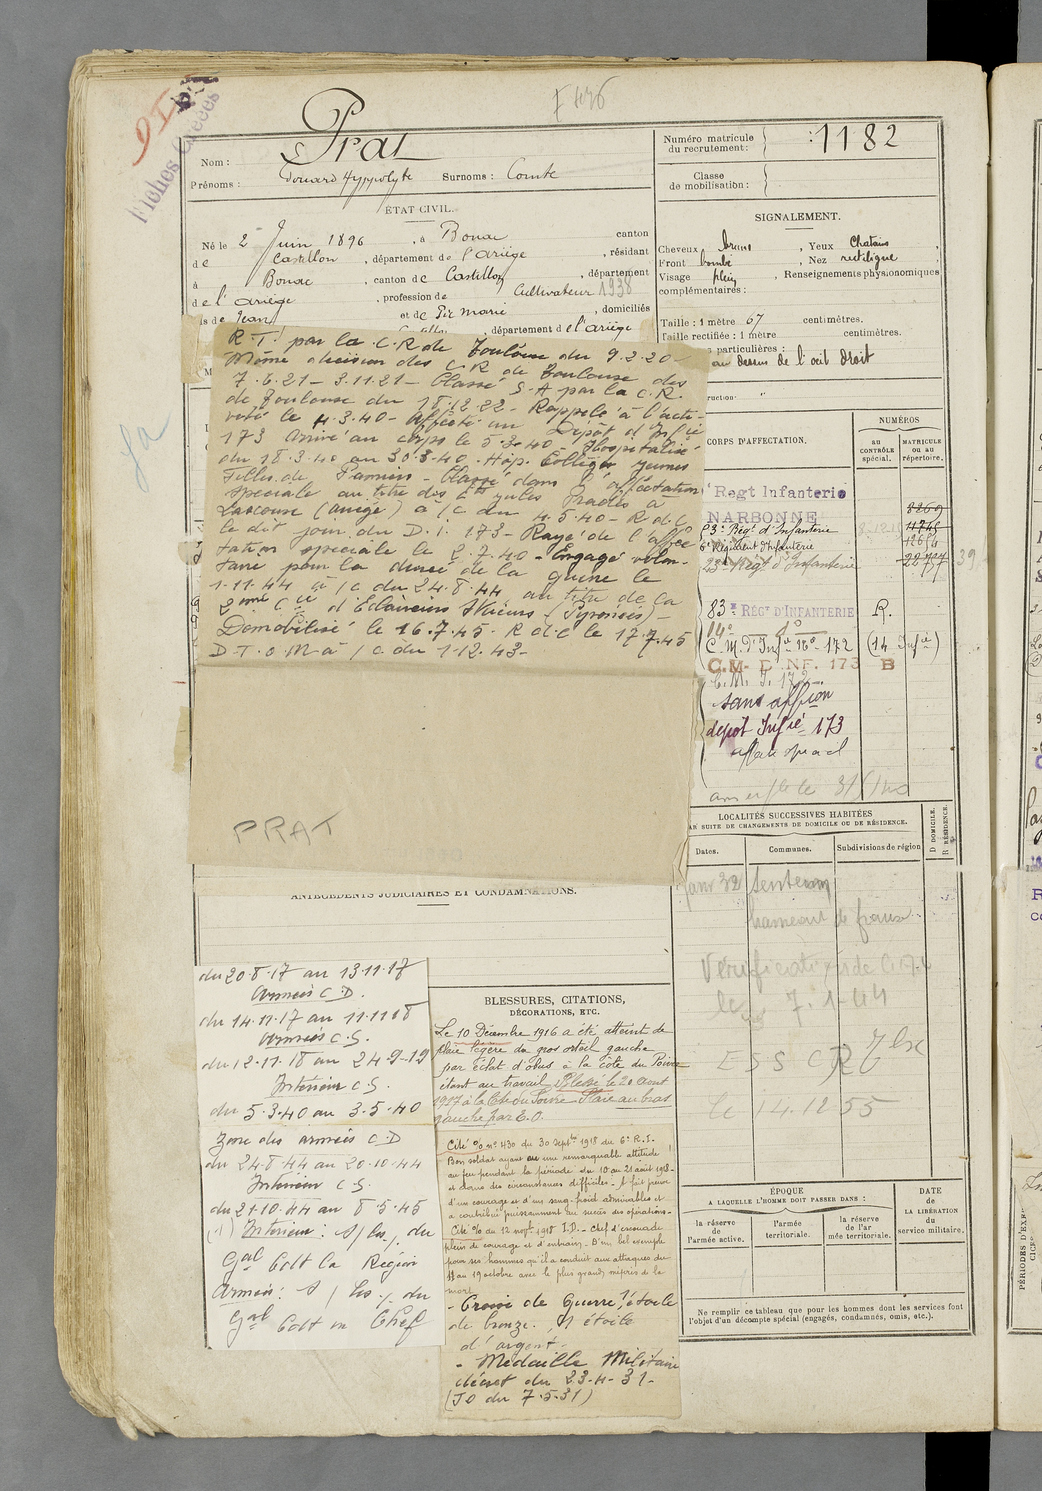 Fiches Créées
Prat
Nom :
Prénoms : Edouard Hyppolyte Surnoms : Comte
Numéro matricule
du recrutement : 1182
Classe
de mobilisation :
ÉTAT CIVIL.
Né le 2 Juin 1896, à Bonac canton
de Castillon, département de l'Ariège, résidant
à Bonac, canton de Castillon, département
de l'ariège, profession de Cultivateur 1938
fils de Jean et de Pir marie, domiciliés
, département de l'ariège
SIGNALEMENT.
Cheveux bruns, Yeux Chatains,
Front bombé, Nez rectiligne,
Visage plein, Renseignements physionomiques
complémentaires :
Taille : 1 mètre 67 centimètres.
Taille rectifiée : 1 mètre centimètres.
particulières :
au dessus de l'œil droit
R.T. par la C.R de Toulouse du 9.2.20-
Même décision des C R de Toulouse des
7.6.21 - 3.11.21 - Classé S.A par la C.R.
de Toulouse du 18.12.22 - Rappelé à l'acti-
vité le 4.3.40 - Affecté au Dépôt d'Infie
173 Arrivé au corps le 5.3.40 - Hospitalisé
du 18.3.40 au 30.3.40. Hôp. Collège Jeunes
Filles de Pamiers - Classé dans l'affectation
spéciale au titre des Ets Jules Pradès à
Lascoux (ariège) à /c du 4.5.40 - R d.C
le dit jour du D.i. 173 - Rayé de l'affec
tation spéciale le 2.7.40 - Engagé volon-
taire pour la durée de la guerre le
1.11.44 à /c du 24.8.44 au titre de la
2ème Cie d'Eclaireurs Skieurs (Pyrénées) -
Démobilisé le 16.7.45. R d.C le 17.7.45
D.T.O.M à /c du 1.12.43-
PRAT
CORPS D'AFFECTATION.
NUMÉROS
AU CONTRÔLE spécial.
MATRICULE ou au répertoire.
Regt Infanterie
NARBONNE 8269
53e Régt d'Infanterie
6e Régiment d'Infanterie
23e Régt d'Infanterie
83e RÉGT D'INFANTERIE R.
14e do
C.M. d'Infie No 172 (14 Infie)
C.M. D'INF. 173 B
C.M. I. 172
sans affion
dépôt Infie 173
affecté spécial
LOCALITÉS SUCCESSIVES HABITÉES
PAR SUITE DE CHANGEMENTS DE DOMICILE OU DE RÉSIDENCE.
Dates. Communes. Subdivisions de région
D DOMICILE.
R RÉSIDENCE.
Janv 32 Sentein
hameau de
Vérification de
le 7.1.44
E S S C R 7 bx
le 14.12 55
ANTÉCÉDENTS JUDICIAIRES ET CONDAMNATIONS.
du 20.8.17 au 13.11.17
Armées C.D.
du 14.11.17 au 11.11.18
Armées C.S.
du 12.11.18 au 24.9.19
Intérieur C.S.
du 5.3.40 au 3.5.40
Zone des armées C.D
du 24.8.44 au 20.10.44
Intérieur C.S.
du 21.10.44 au 8.5.45
(1) Intérieur : du
Gal Cdt la Région
Armées : du
Gal Cdt en Chef
BLESSURES, CITATIONS,
DÉCORATIONS, ETC.
Le 10 Décembre 1916 a été atteint de
plaie légère du gros orteil gauche
par éclat d'obus à la côte du Poivre
étant au travail. Blessé le 20 Aout
1917 à la Côte du Poivre Plaie au bras
gauche par E.O.
Cité % no 430 du 30 septbre 1918 du 6e R.I.
Bon soldat ayant eu une remarquable attitude
au feu pendant la période du 10 au 21 août 1918-
et dans des circonstances difficiles - A fait preuve
d'un courage et d'un sang-froid admirables et
a contribué puissamment au succès des opérations -
Cité % du 12 novt 1918 I.D. - Chef d'escouade
plein de courage et d'entrain. D'un bel exemple
pour ses hommes qu'il a conduit aux attaques du
11 au 19 octobre avec le plus grand mépris de la
mort
- Croix de Guerre 1 étoile
de bronze. 1 étoile
d'argent -
- Médaille Militaire
décret du 23-4-31-
(JO du 7.5.31)
ÉPOQUE
A LAQUELLE L'HOMME DOIT PASSER DANS :
la réserve de l'armée active.
l'armée territoriale.
la réserve de l'armée territoriale.
DATE
de LA LIBÉRATION
du service militaire.
Ne remplir ce tableau que pour les hommes dont les services font
l'objet d'un décompte spécial (engagés, condamnés, omis, etc.).
PÉRIODES D'EXER